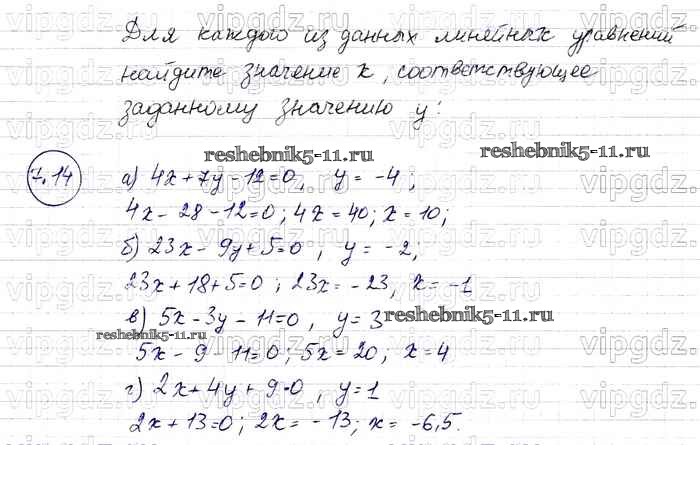 Для каждого из данных линейных уравнений
найдите значение x, соответствующее
заданному значению y:
reshebnik5-11.ru reshebnik5-11.ru
7.14 а) 4x+7y-12=0, y=-4;
4x-28-12=0; 4x=40; x=10;
б) 23x-9y+5=0, y=-2;
23x+18+5=0; 23x=-23, x=-1
в) 5x-3y-11=0, y=3 reshebnik5-11.ru
reshebnik5-11.ru
5x-9-11=0; 5x=20, x=4
г) 2x+4y+9=0, y=1
2x+13=0; 2x=-13; x=-6,5.
vipgdz.ru vipgdz.ru vipgdz.ru vipgdz.ru